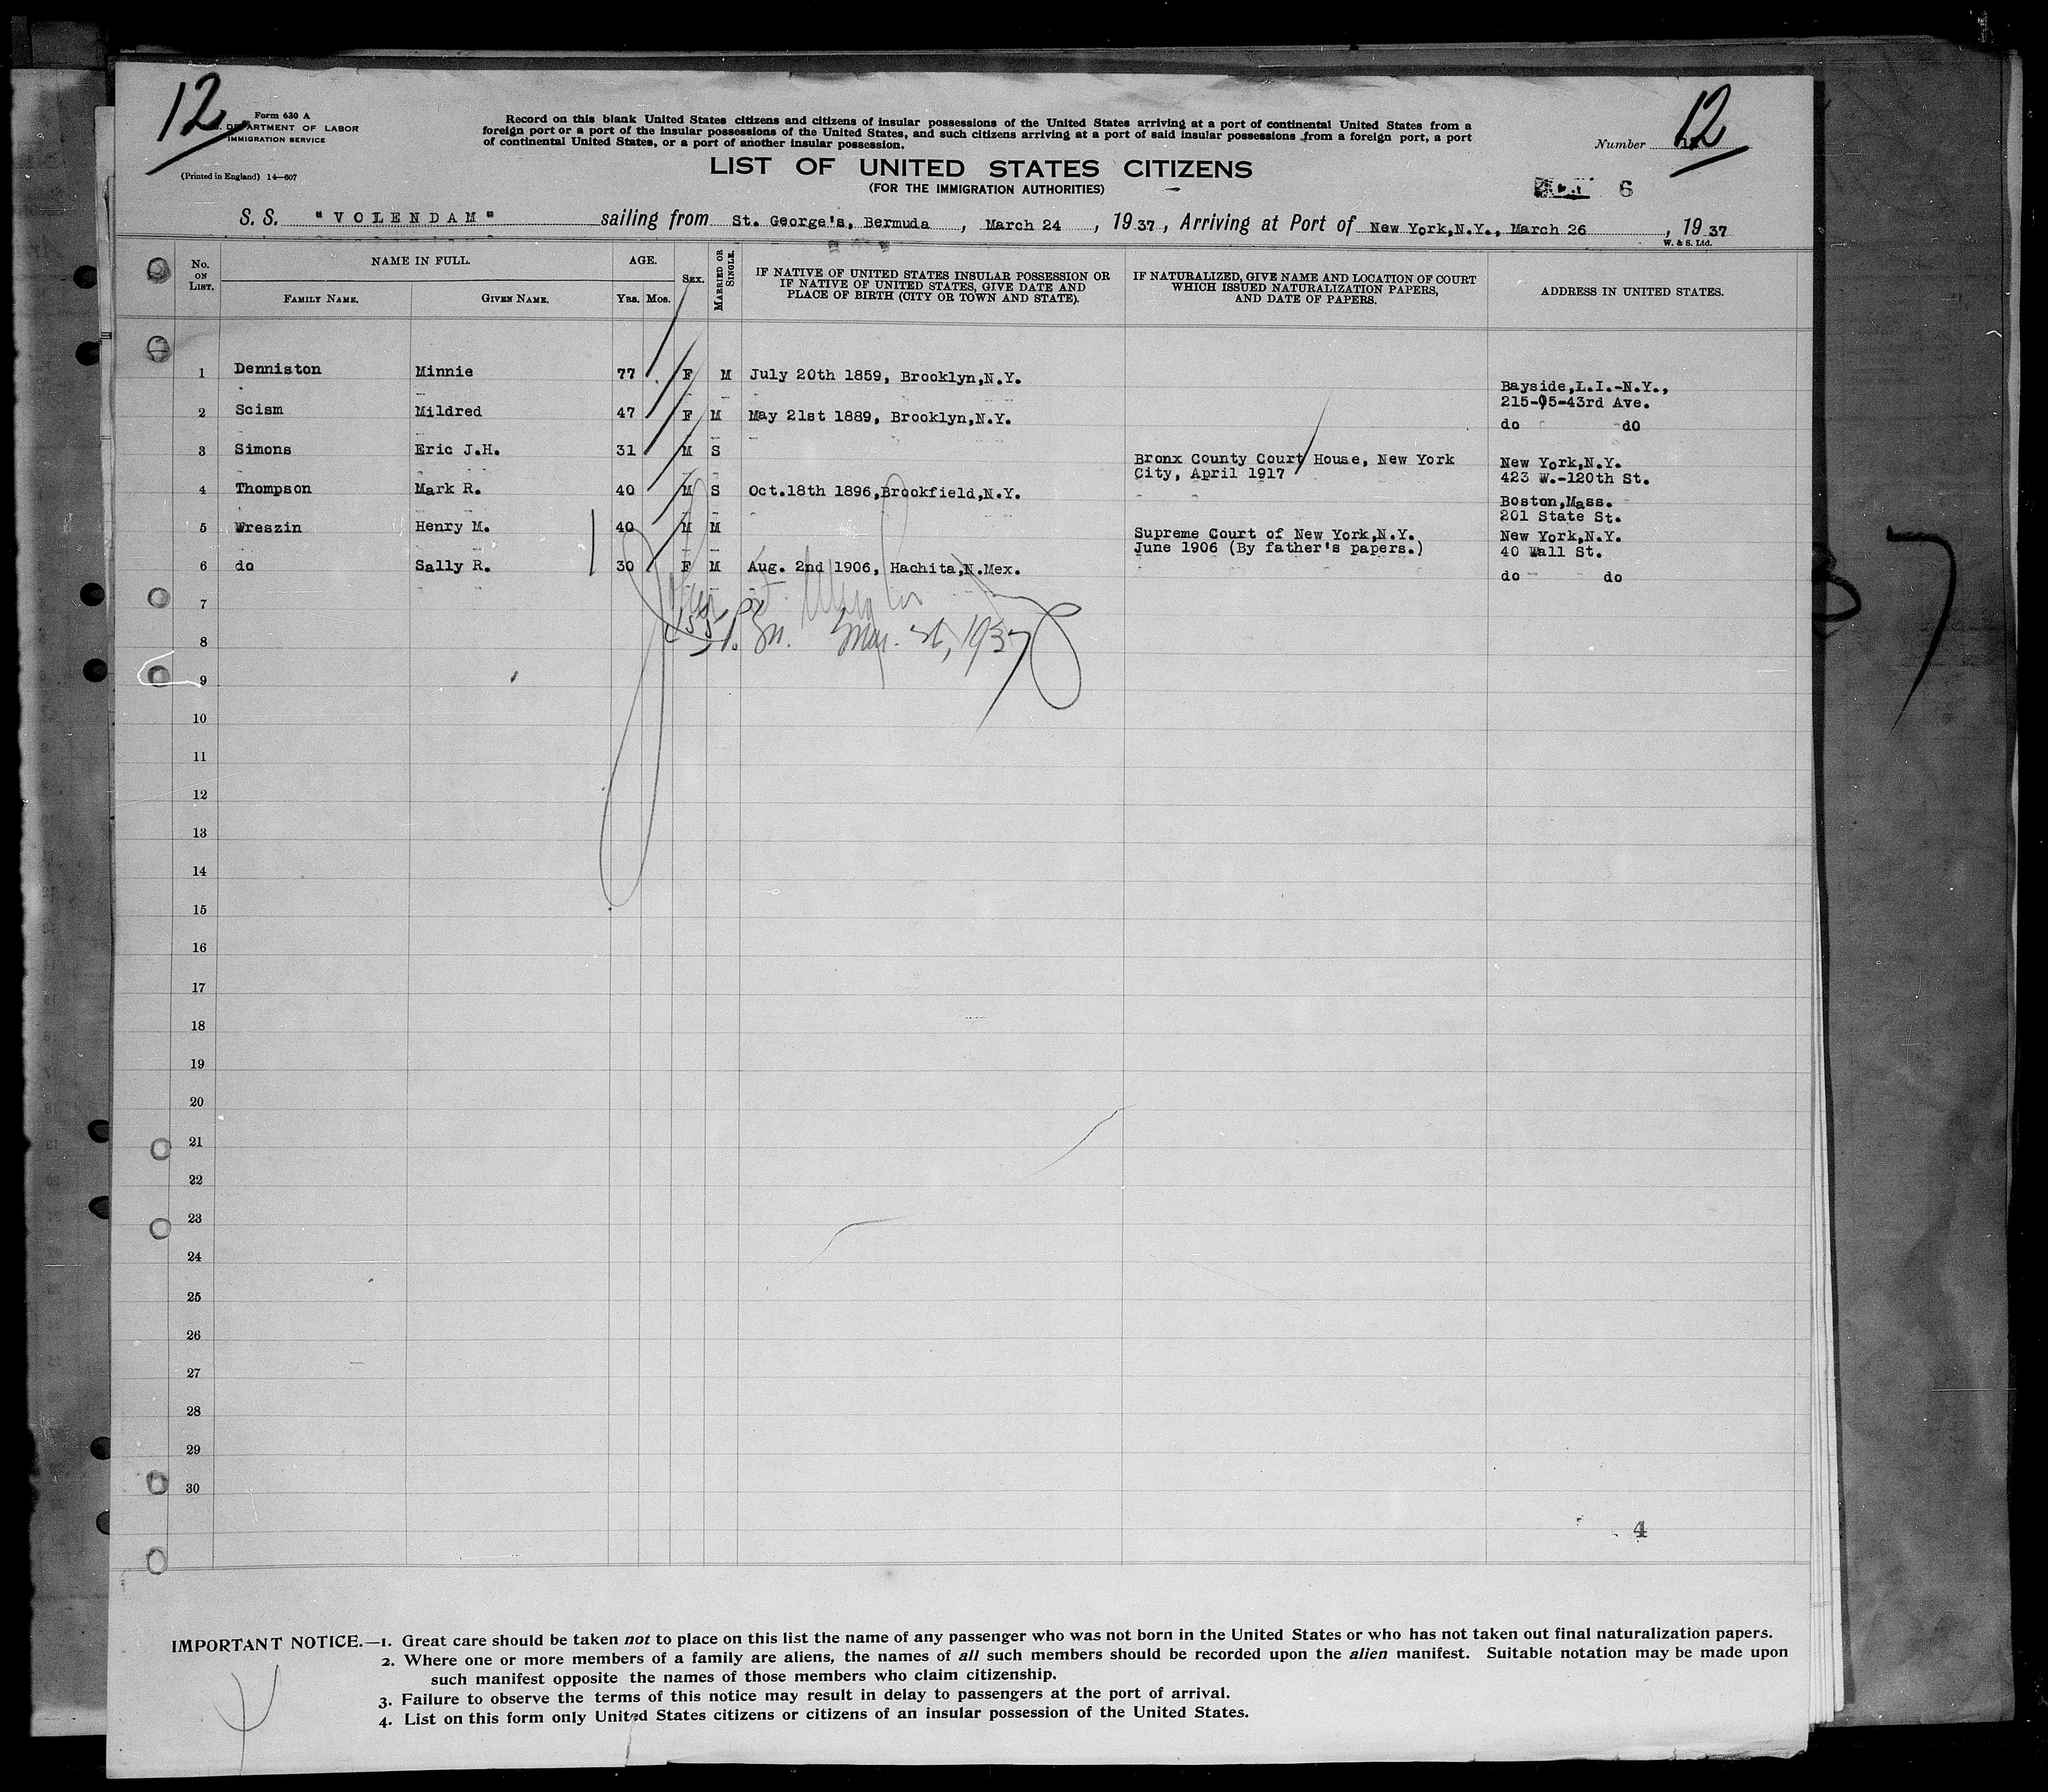 12
Form 630 A
DEPARTMENT OF LABOR
IMMIGRATION SERVICE
(Printed in England) 14—607
Record on this blank United States citizens and citizens of insular possessions of the United States arriving at a port of continental United States from a
foreign port or a port of the insular possessions of the United States, and such citizens arriving at a port of said insular possessions from a foreign port, a port
of continental United States, or a port of another insular possession.
Number 12
LIST OF UNITED STATES CITIZENS
(FOR THE IMMIGRATION AUTHORITIES)
6
S. S. "VOLENDAM" sailing from St. George's, Bermuda, March 24, 1937, Arriving at Port of New York,N.Y., March 26, 1937
W. & S. Ltd.
No. ON LIST. NAME IN FULL. FAMILY NAME. GIVEN NAME. AGE. YRS. MOS. SEX. MARRIED OR SINGLE. IF NATIVE OF UNITED STATES INSULAR POSSESSION OR IF NATIVE OF UNITED STATES, GIVE DATE AND PLACE OF BIRTH (CITY OR TOWN AND STATE). IF NATURALIZED, GIVE NAME AND LOCATION OF COURT WHICH ISSUED NATURALIZATION PAPERS, AND DATE OF PAPERS. ADDRESS IN UNITED STATES.
1 Denniston Minnie 77 F M July 20th 1859, Brooklyn,N.Y. Bayside,L.I.-N.Y.,
215-05-43rd Ave.
2 Scism Mildred 47 F M May 21st 1889, Brooklyn,N.Y. do do
3 Simons Eric J.H. 31 M S Bronx County Court House, New York New York,N.Y.
City, April 1917 423 W.-120th St.
4 Thompson Mark R. 40 M S Oct.18th 1896,Brookfield,N.Y. Boston,Mass.
201 State St.
5 Wreszin Henry M. 40 M M Supreme Court of New York,N.Y. New York,N.Y.
June 1906 (By father's papers.) 40 Wall St.
6 do Sally R. 30 F M Aug. 2nd 1906, Hachita,N.Mex. do do
7
8
1937
9
10
11
12
13
14
15
16
17
18
19
20
21
22
23
24
25
26
27
28
29
30
4
IMPORTANT NOTICE.—1. Great care should be taken not to place on this list the name of any passenger who was not born in the United States or who has not taken out final naturalization papers.
2. Where one or more members of a family are aliens, the names of all such members should be recorded upon the alien manifest. Suitable notation may be made upon
such manifest opposite the names of those members who claim citizenship.
3. Failure to observe the terms of this notice may result in delay to passengers at the port of arrival.
4. List on this form only United States citizens or citizens of an insular possession of the United States.